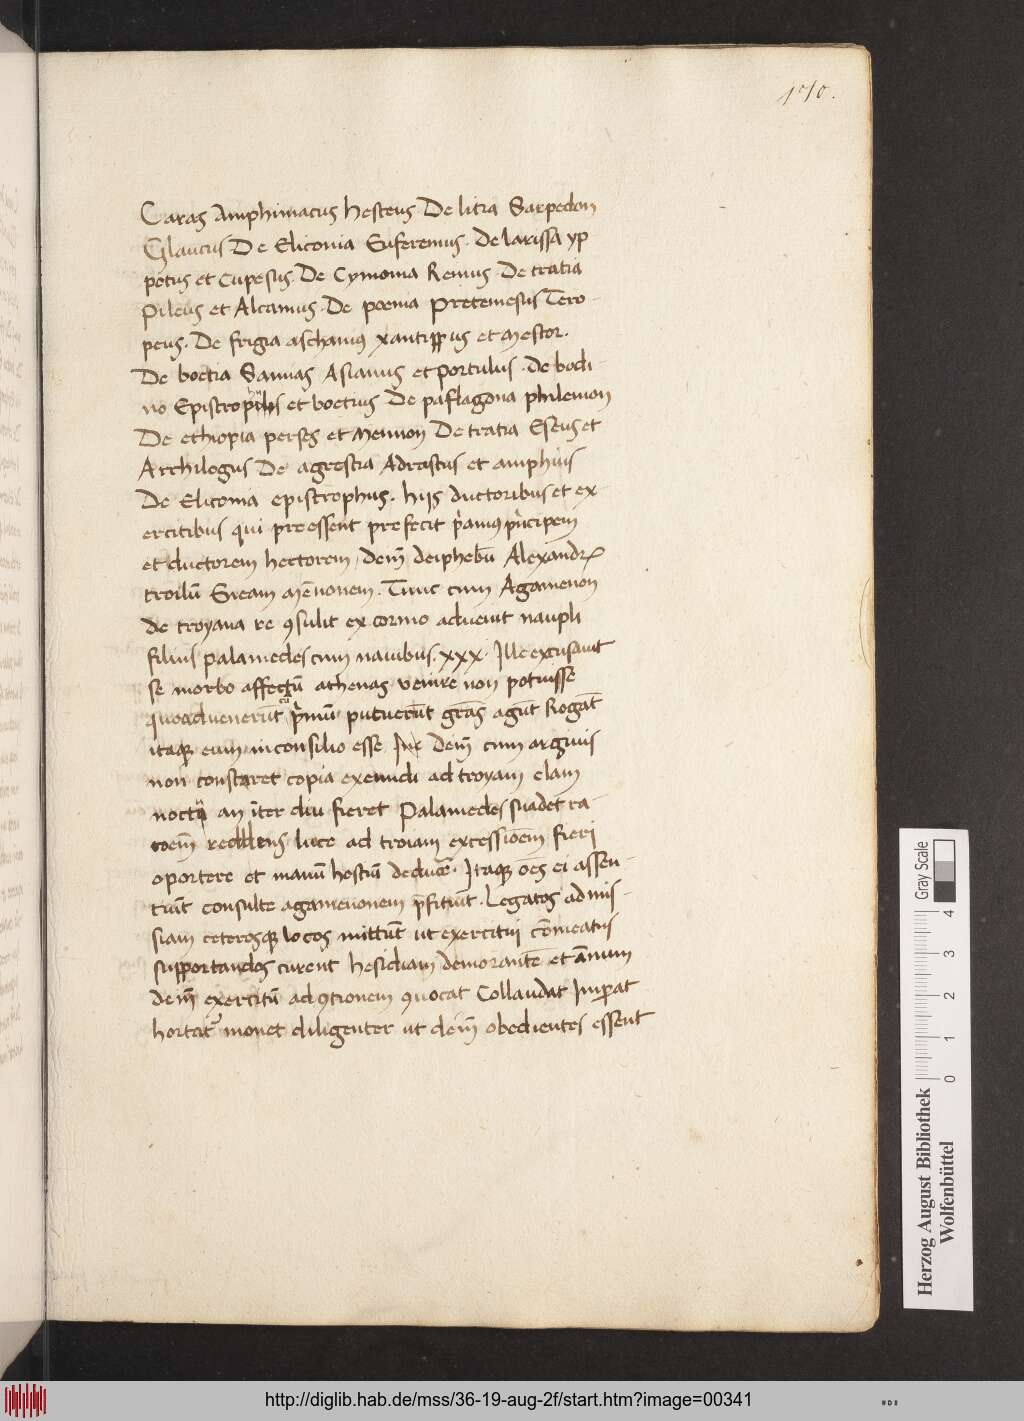 170.
Caras Amphimacus hesteus. De litia Sarpedon
Glaucus De Eliconia Euferemus. de larissa yp
potus et Cupesus. De Cymonia Remus. De tratia
Pileus et Alcamus. De poenia Pretemesus Tero-
peus. De frigia aschanius xantippus et Mestor.
De boetia Samas Asianus et portulus. de bodi-
no Epistrophus et boetius De paflagona philemon
De ethiopia perses et Mennon De tratia Eseus et
Archilogus De agrestia Adrastus et amphius
De Eliconia epistrophus. hijs ductoribus et ex-
ercitibus qui preessent prefecit p̄amus pn̄cipem
et ductorem hectorem dem̄ deiphebū Alexandr̄
troilū Eneam Mēnonem. Tunc cum Agamenon
de troyana re ꝯsulit ex cormo advenit naupli
filius palamedes cum navibus. xxx. Ille excusavit
se morbo affectū athenas venire non potuisse
quoadvenerūt p̄mū putuerūt grās agūt Rogāt
itaqꝫ eum in consilio esse Inr Dem̄ cum argivis
non constaret copia exeundi ad troyam clam
noctu an īter diu fieret Palamedes suadet ra-
coem̄ reddens luce ad troiam excessiōem fieri
oportere et manū hostiū deducē. Itaqꝫ oēs ei assen-
tiūt consulte agamenonem p̄fitiūt. Legatos ad mis-
siam ceterosqꝫ locos mittūt ut exercitui cōmeatus
supportandos curent hesidiam demorantē et āmum
dem̄ exercitū ad ꝯtionem ꝯvocat Collaudat Imꝑat
hortat᷑ monet diligenter ut dem̄ obedientes essent
Herzog August Bibliothek
Wolfenbüttel
Gray Scale
0 1 2 3 4
http://diglib.hab.de/mss/36-19-aug-2f/start.htm?image=00341